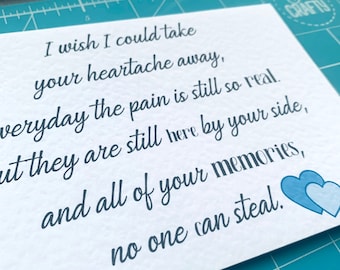 I wish I could take
your heartache away,
everyday the pain is still so real.
but they are still here by your side,
and all of your memories,
no one can steal.
CRAFTY